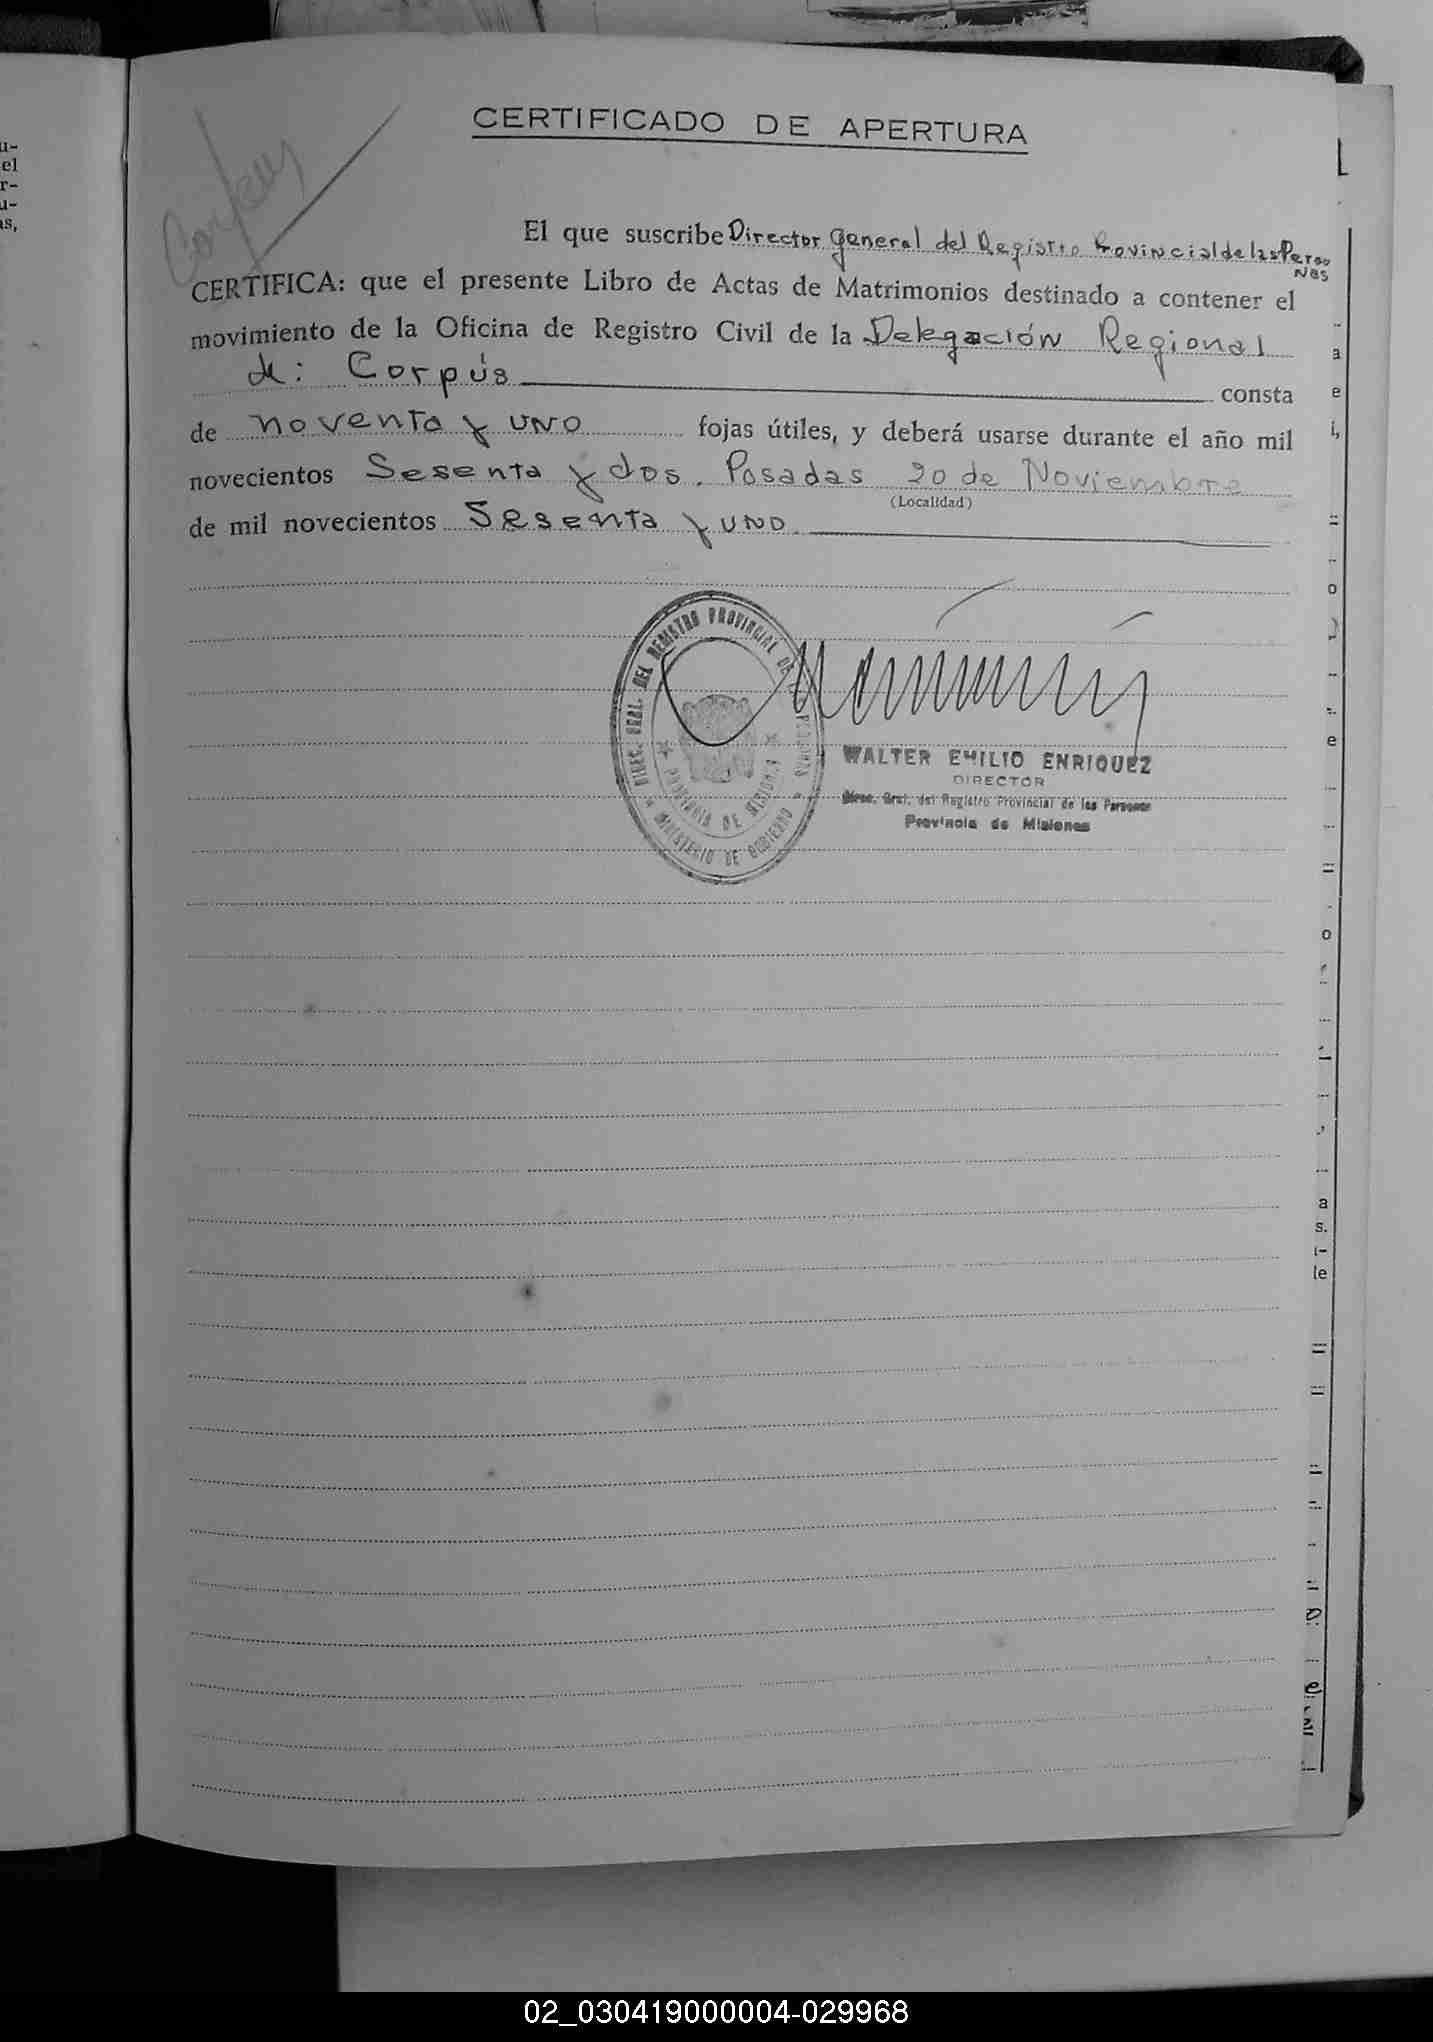 CERTIFICADO DE APERTURA
Corpus
El que suscribe Director General del Registro Provincial de las Perso
nas
CERTIFICA: que el presente Libro de Actas de Matrimonios destinado a contener el
movimiento de la Oficina de Registro Civil de la Delegación Regional
de: Corpús consta
de noventa y uno fojas útiles, y deberá usarse durante el año mil
novecientos Sesenta y dos. Posadas 20 de Noviembre
(Localidad)
de mil novecientos Sesenta y uno.
DIREC. GRAL. DEL REGISTRO PROVINCIAL DE PERSONAS
PROVINCIA DE MISIONES
MINISTERIO DE GOBIERNO
WALTER EMILIO ENRIQUEZ
DIRECTOR
Direc. Gral. del Registro Provincial de las Personas
Provincia de Misiones
02_030419000004-029968